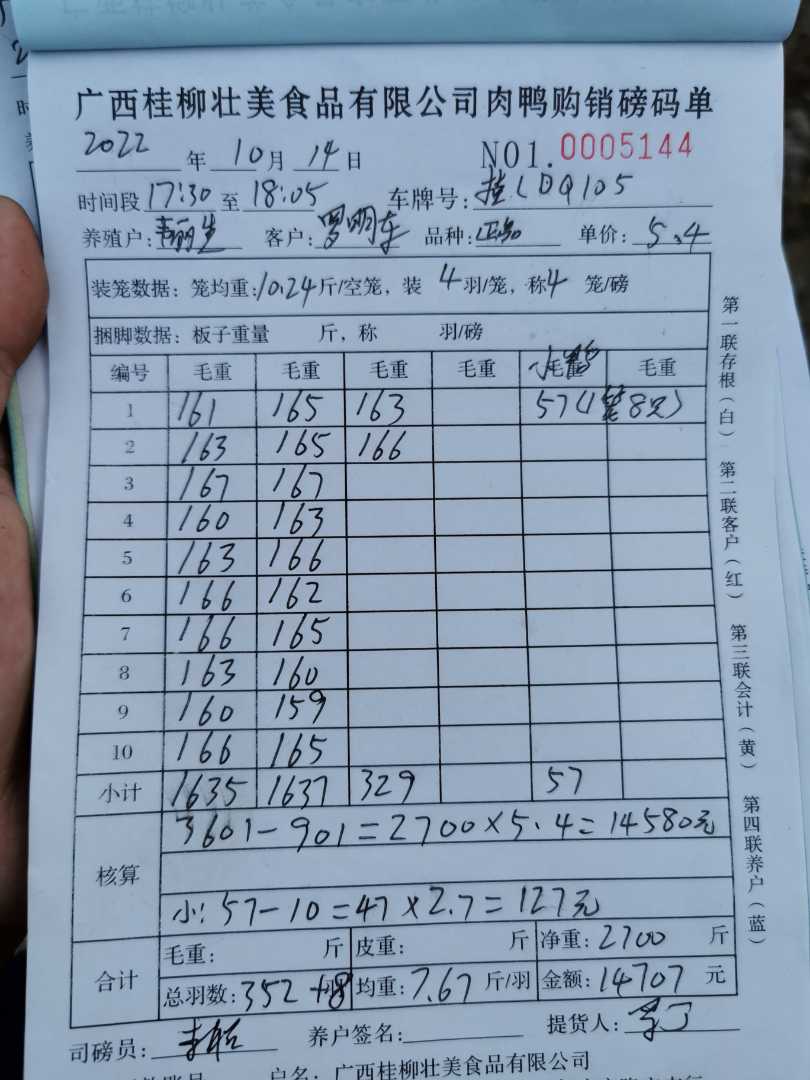 广西桂柳壮美食品有限公司肉鸭购销磅码单
2022年10月14日 NO1.0005144
时间段17:30至18:05 车牌号:桂LDQ105
养殖户: 客户:罗明车 品种: 单价:5.4
装笼数据:笼均重:10.24斤/空笼,装4羽/笼,称4笼/磅
捆脚数据:板子重量 斤,称 羽/磅
编号 毛重 毛重 毛重 毛重 毛重
1 161 165 163 57(1笼8只)
2 163 165 166
3 167 167
4 160 163
5 163 166
6 166 162
7 166 165
8 163 160
9 160 159
10 166 165
小计 1635 1637 329 57
核算 3601-901=2700×5.4=14580元
小:57-10=47×2.7=127元
合计 毛重: 斤 皮重: 斤 净重:2700斤
总羽数:352+8羽 均重:7.67斤/羽 金额:14707元
司磅员: 养户签名: 提货人:
户名:广西桂柳壮美食品有限公司
第一联存根(白) 第二联客户(红) 第三联会计(黄) 第四联养户(蓝)